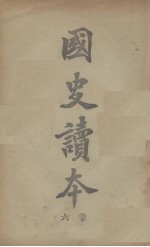 國史讀本
卷六